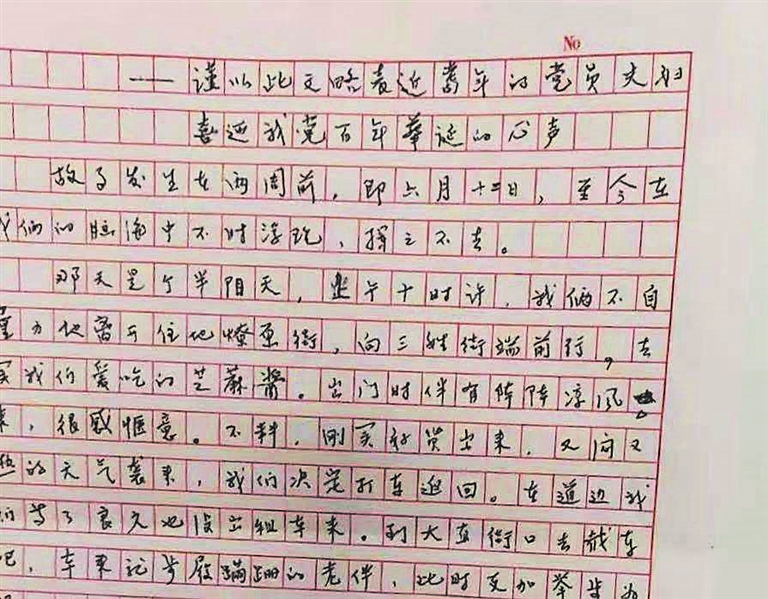 No
——谨以此文略表近耄年的党员夫妇
喜迎我党百年华诞的心声
故事发生在两周前，即六月十二日，至今在
我俩的脑海中不时浮现，挥之不去。
那天是个半阴天，上午十时许，我俩不自
量力地离开住地燎原街，向三姓街端前行，去
买我们爱吃的芝蔴酱。出门时伴有阵阵凉风
来，很感惬意。不料，刚买好货出来，又闷又
热的天气袭来，我们决定打车返回。在道边我
们等了良久也没出租车来。到大直街口去截车
吧，本来就步履蹒跚的老伴，此时更加举步为